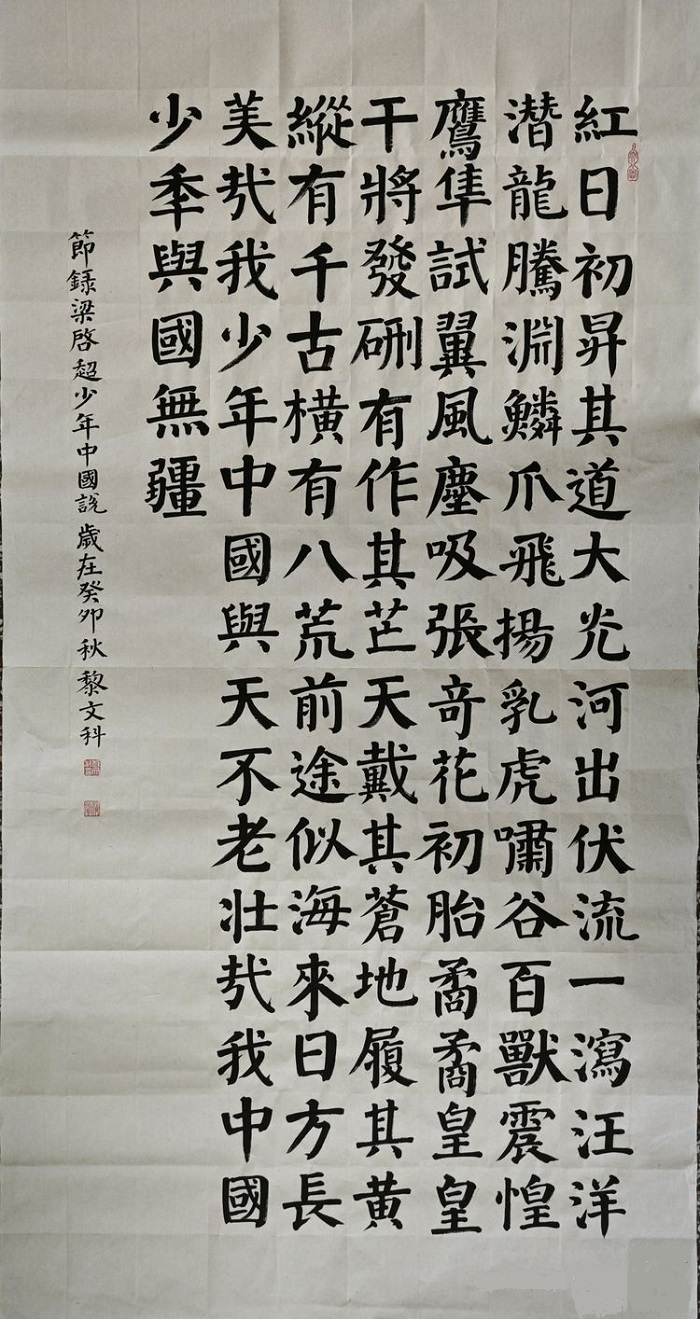 紅日初昇其道大光河出伏流一瀉汪洋
潛龍騰淵鱗爪飛揚乳虎嘯谷百獸震惶
鷹隼試翼風塵吸張奇花初胎矞矞皇皇
干將發硎有作其芒天戴其蒼地履其黃
縱有千古橫有八荒前途似海來日方長
美哉我少年中國與天不老壯哉我中國
少年與國無疆
節錄梁啓超少年中國說歲在癸卯秋黎文科